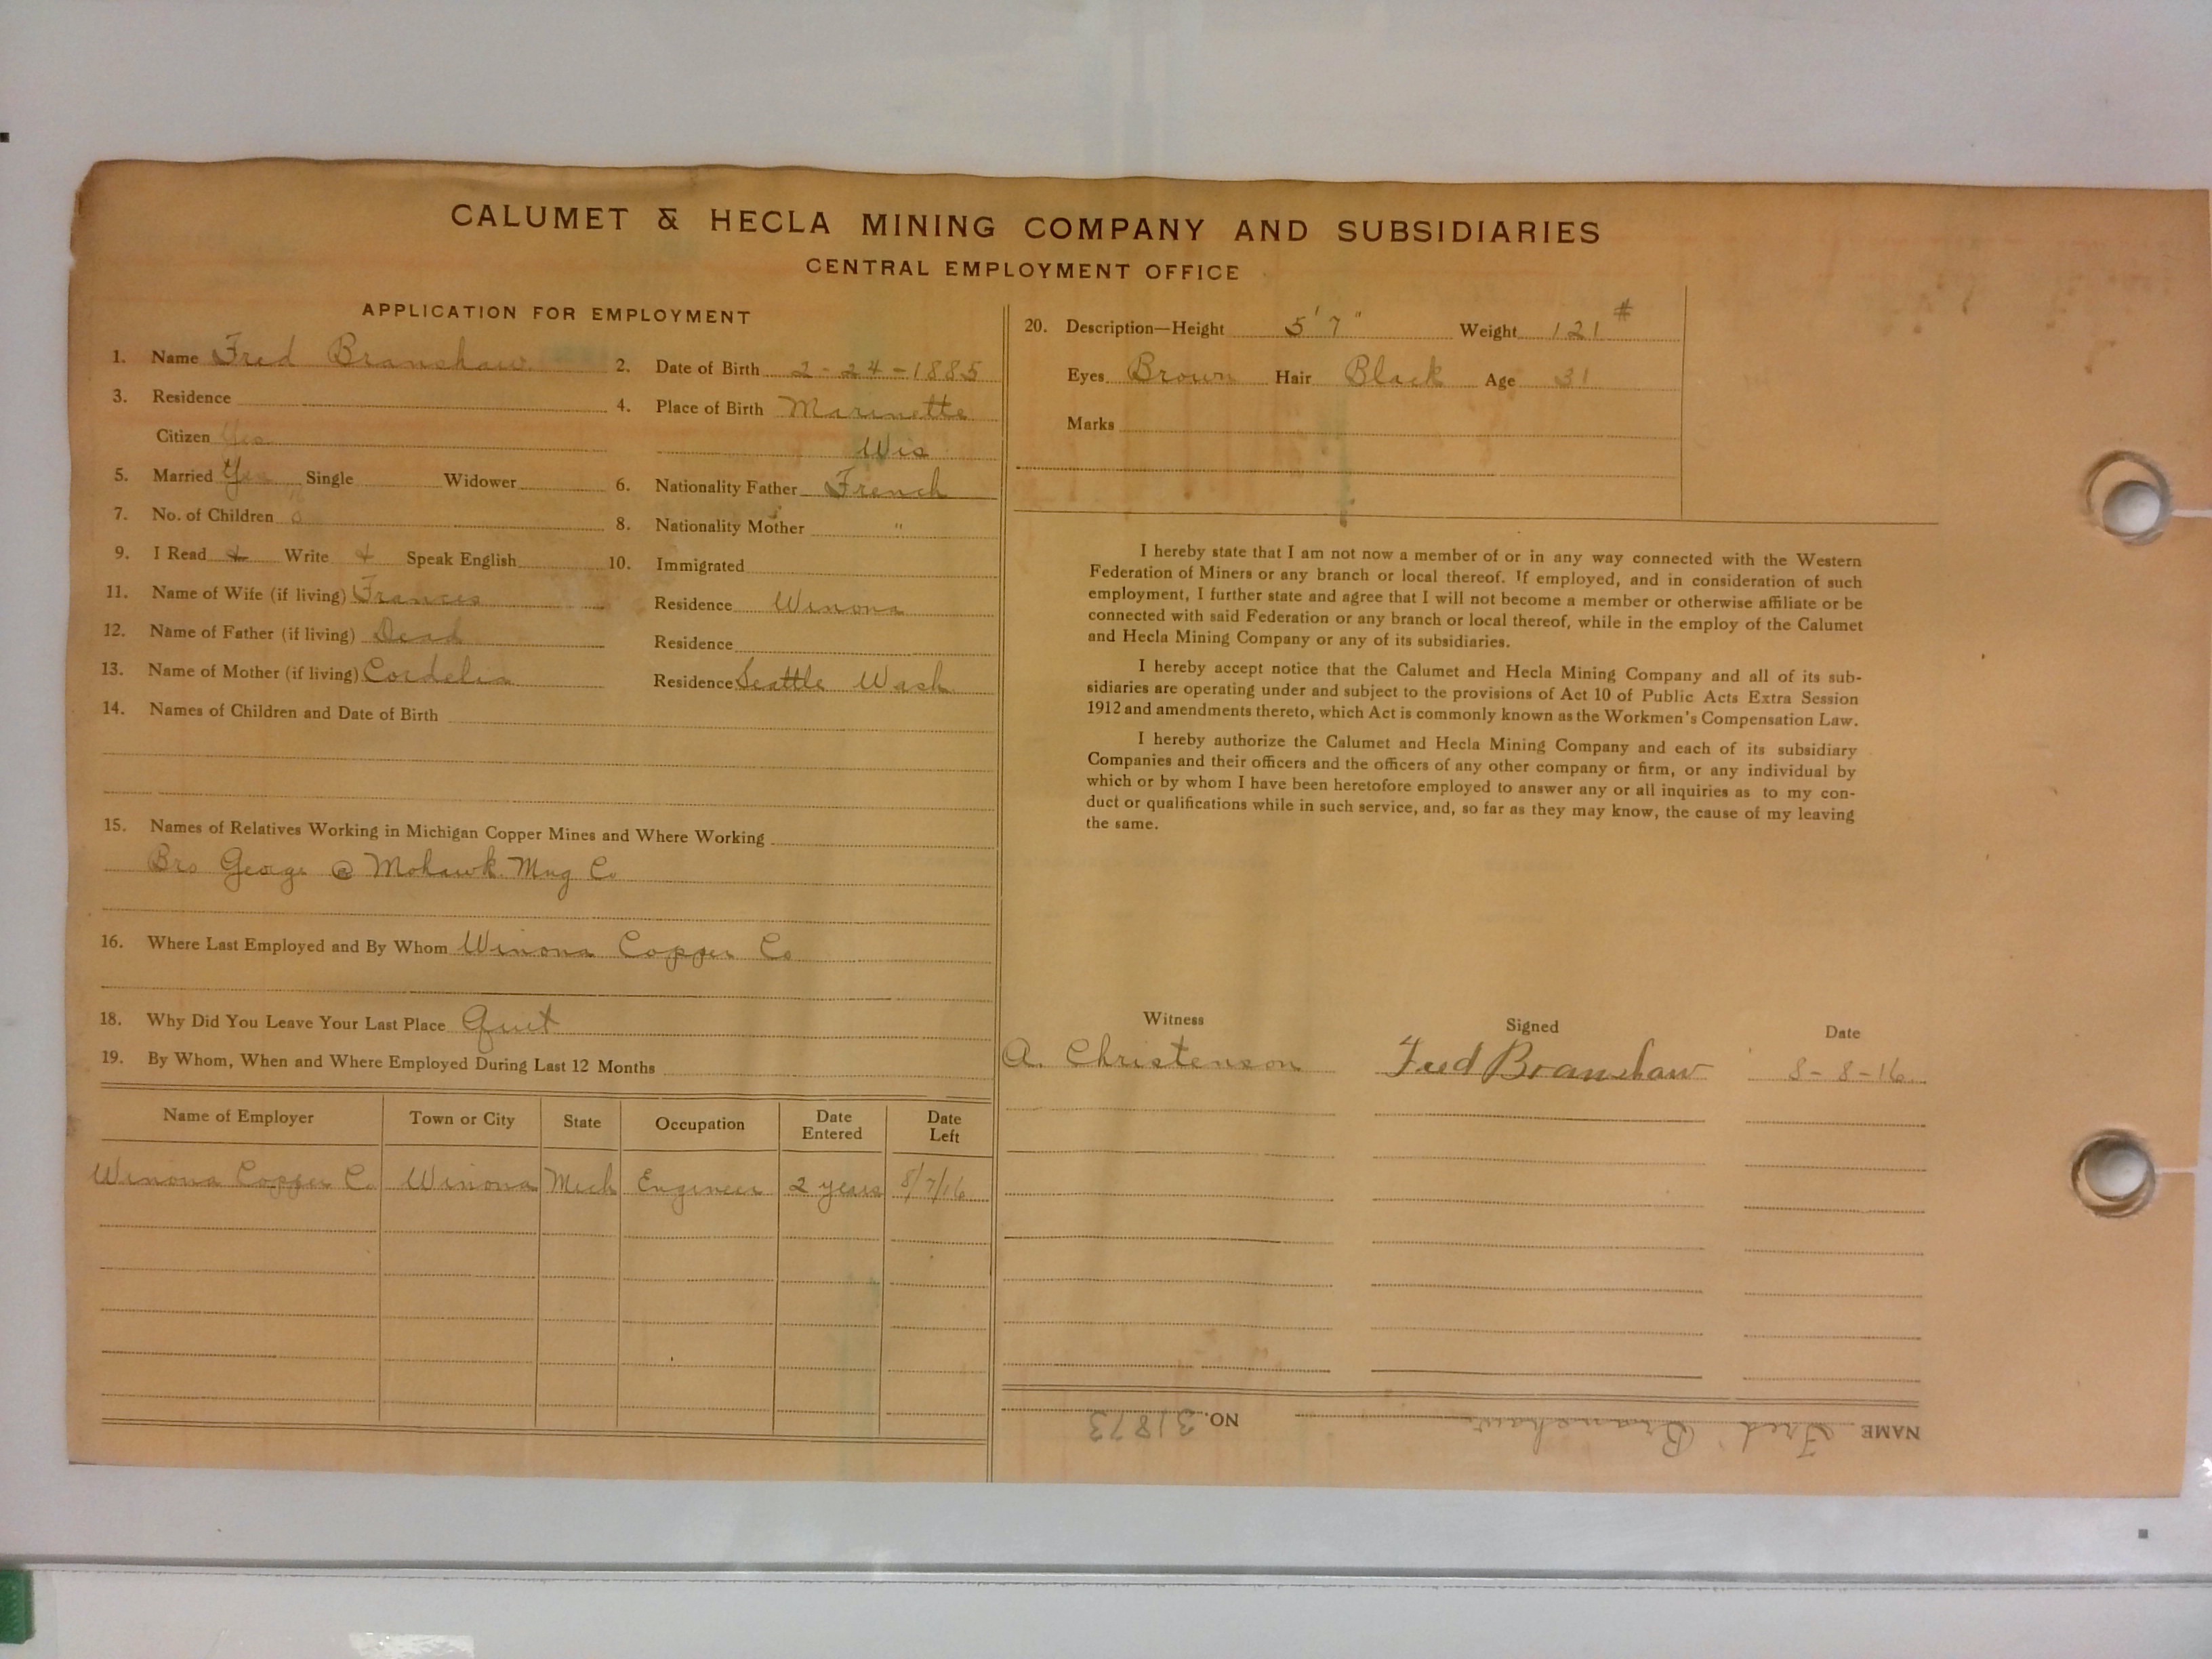 CALUMET & HECLA MINING COMPANY AND SUBSIDIARIES
CENTRAL EMPLOYMENT OFFICE
APPLICATION FOR EMPLOYMENT
1. Name Fred Branshaw 2. Date of Birth 2-24-1885
3. Residence 4. Place of Birth Marinette
Citizen Yes Wis
5. Married Yes Single Widower 6. Nationality Father French
7. No. of Children 0 8. Nationality Mother "
9. I Read Write Speak English 10. Immigrated
11. Name of Wife (if living) Frances Residence Winona
12. Name of Father (if living) Dead Residence
13. Name of Mother (if living) Cordelia Residence Seattle Wash
14. Names of Children and Date of Birth
15. Names of Relatives Working in Michigan Copper Mines and Where Working
Bro George @ Mohawk Mng Co
16. Where Last Employed and By Whom Winona Copper Co
18. Why Did You Leave Your Last Place Quit
19. By Whom, When and Where Employed During Last 12 Months
Name of Employer Town or City State Occupation Date Entered Date Left
Winona Copper Co Winona Mich Engineer 2 years 8/7/16
20. Description—Height 5'7" Weight 121 #
Eyes Brown Hair Black Age 31
Marks
I hereby state that I am not now a member of or in any way connected with the Western
Federation of Miners or any branch or local thereof. If employed, and in consideration of such
employment, I further state and agree that I will not become a member or otherwise affiliate or be
connected with said Federation or any branch or local thereof, while in the employ of the Calumet
and Hecla Mining Company or any of its subsidiaries.
I hereby accept notice that the Calumet and Hecla Mining Company and all of its sub-
sidiaries are operating under and subject to the provisions of Act 10 of Public Acts Extra Session
1912 and amendments thereto, which Act is commonly known as the Workmen's Compensation Law.
I hereby authorize the Calumet and Hecla Mining Company and each of its subsidiary
Companies and their officers and the officers of any other company or firm, or any individual by
which or by whom I have been heretofore employed to answer any or all inquiries as to my con-
duct or qualifications while in such service, and, so far as they may know, the cause of my leaving
the same.
Witness Signed Date
A. Christenson Fred Branshaw 8-8-16
NAME Fred Branshaw NO. 31873